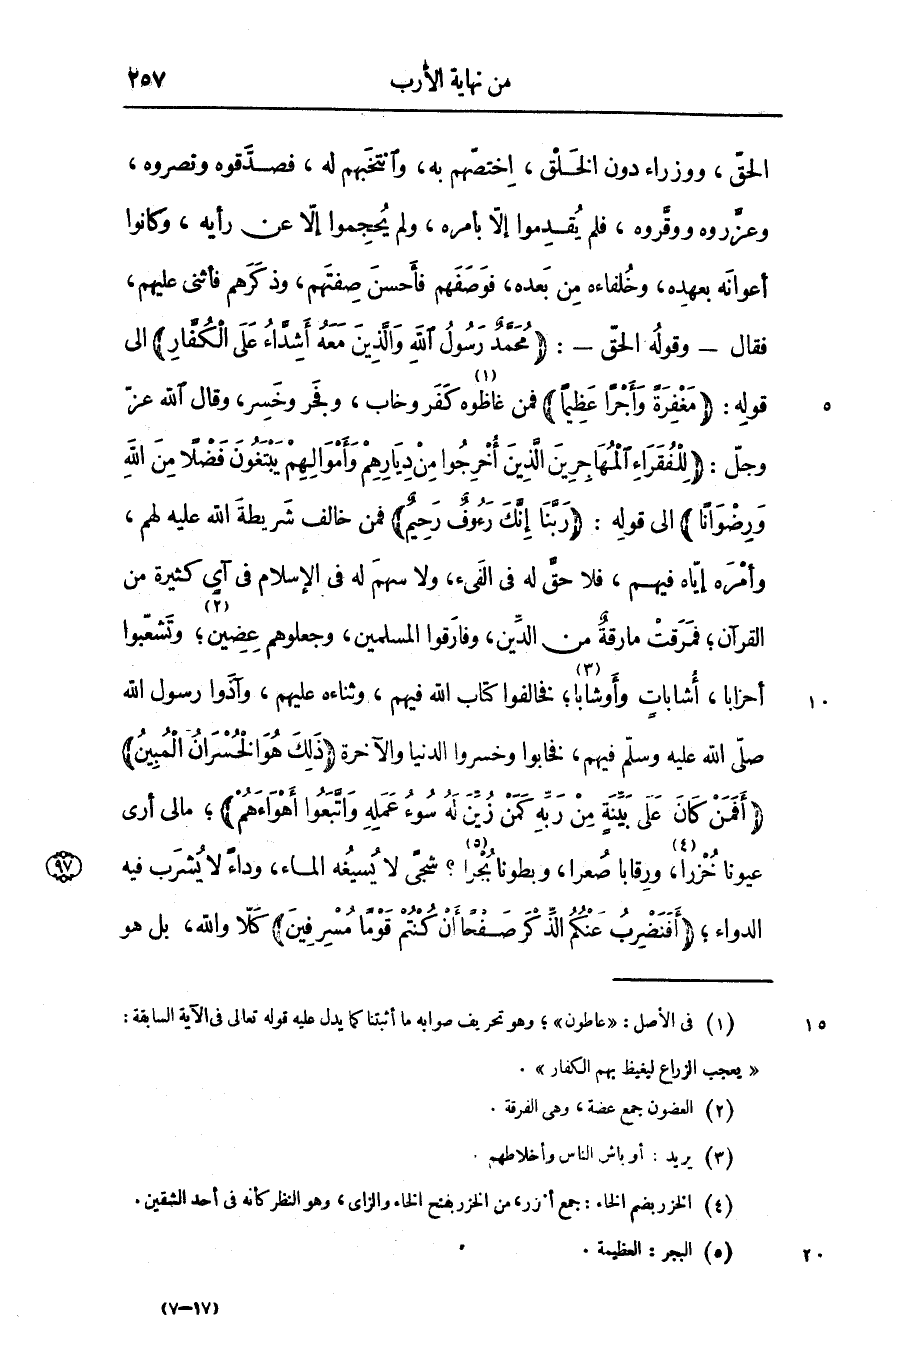 من نهاية الأرب ٢٥٧
الحقّ ، ووزراء دون الخَـلْق ، اِختصّهم به، وٱنتخَبهم له ، فصـدَّقوه ونصروه ،
وعزَّروه ووقَّروه ، فلم يُقـدِموا إلّا بأمره ، ولم يُحجِموا إلّا عن رأيه ، وكانوا
أعوانَه بعهدِه، وخُلفاءه مِن بَعده، فوَصَفَهم فأَحسنَ صِفتَهم، وذكَرَهم فأثنى عليهم،
فقال — وقولُه الحقّ — : ﴿ مُحَمَّدٌ رَسُولُ ٱللهِ وَالَّذِينَ مَعَهُ أَشِدَّاءُ عَلَى الْكُفَّارِ ﴾ الى
قولِه : ﴿ مَغْفِرَةً وَأَجْرًا عَظِيمًا ﴾ فمن غاظوه (١) كَفَر وخاب ، وبَحَر وخَسِر، وقال ٱلله عزّ ٥
وجلّ : ﴿ لِلْفُقَرَاءِ ٱلْمُهَاجِرِينَ الَّذِينَ أُخْرِجُوا مِنْ دِيَارِهِمْ وَأَمْوَالِهِمْ يَبْتَغُونَ فَضْلًا مِنَ اللهِ
وَرِضْوَانًا ﴾ الى قولِه : ﴿ رَبَّنَا إِنَّكَ رَءُوفٌ رَحِيمٌ ﴾ فمن خالف شَرِيطةَ الله عليه لهم ،
وأمْرَه إيّاه فيهـم ، فلا حقَّ له فى الفَىء، ولا سهمَ له فى الإسلام فى آىٍ كثيرة من
القرآن؛ فمَرَقتْ مارقةٌ من الدِّين، وفارَقوا المسلمين، وجعلوهم عِضِين (٢)؛ وتَشَعّبوا
أحزابا ، أُشاباتٍ وأَوشابا (٣)؛ فخالفوا كتابَ الله فيهم ، وثناءَه عليهم ، وآذَوا رسول الله ١٠
صلّى الله عليه وسلّم فيهم، فخابوا وخسروا الدنيا والآخرة ﴿ ذَلِكَ هُوَ الْخُسْرَانُ الْمُبِينُ ﴾
﴿ أَفَمَنْ كَانَ عَلَى بَيِّنَةٍ مِنْ رَبِّهِ كَمَنْ زُيِّنَ لَهُ سُوءُ عَمَلِهِ وَاتَّبَعُوا أَهْوَاءَهُمْ ﴾ ؛ مالى أرى
عيونا خُزْرا (٤)، ورِقابا صُعرا، وبطونا بُجْرا (٥) ؟ شجًى لا يُسيغُه المـاء، وداءً لا يُشرَب فيه ٩٧
الدواء ؛ ﴿ أَفَنَضْرِبُ عَنْكُمُ الذِّكْرَ صَـفْحًا أَنْ كُنْتُمْ قَوْمًا مُسْرِفِينَ ﴾ كَلّا والله، بل هو
(١) فى الأصل : «عاطون» ؛ وهو تحريف صوابه ما أثبتنا كما يدل عليه قوله تعالى فى الآية السابقة : ١٥
« يعجب الزراع ليغيظ بهم الكفار » .
(٢) العضون جمع عضة ، وهى الفرقة .
(٣) يريد : أوباش الناس وأخلاطهم .
(٤) الخزر بضم الخاء : جمع أخزر، من الخزر بفتح الخاء والزاى ، وهو النظر كأنه فى أحد الشقين .
(٥) البجر : العظيمة . ٢٠
(٧-١٧)